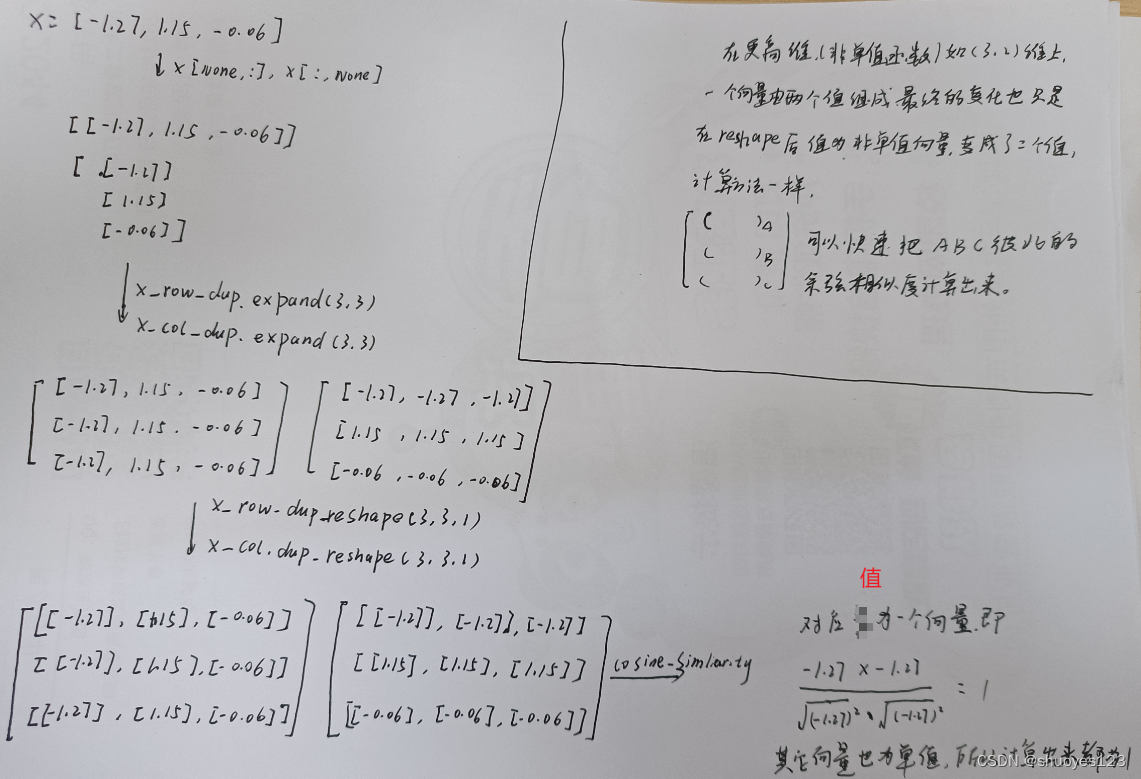 x = [-1.27, 1.15, -0.06]
↓ x[None,:], x[:,None]
[[-1.27, 1.15, -0.06]]
[[-1.27]
[1.15]
[-0.06]]
x_row_dup.expand(3,3)
x_col_dup.expand(3.3)
[-1.27, 1.15, -0.06] [-1.27, -1.27, -1.27]
[-1.27, 1.15, -0.06] [1.15, 1.15, 1.15]
[-1.27, 1.15, -0.06] [-0.06, -0.06, -0.06]
x_row_dup_reshape(3,3,1)
x_col.dup_reshape(3.3.1)
[[-1.27], [1.15], [-0.06]] [[-1.27], [-1.27], [-1.27]]
[[-1.27], [1.15], [-0.06]] [[1.15], [1.15], [1.15]]
[[-1.27], [1.15], [-0.06]] [[-0.06], [-0.06], [-0.06]]
cosine-similarity
在更高维,(非单值函数)如(3,2)维上,
一个向量由两个值组成 最终的变化也只是
在reshape后值为非单值向量,变成了二个值,
计算方法一样,
( )A
( )B
( )C
可以快速把ABC彼此的
余弦相似度计算出来。
值
对应 为一个向量,即
-1.27 x -1.27
√(-1.27)² · √(-1.27)² = 1
其它向量也为单值,所以计算出来都为1
CSDN @shuoyes123